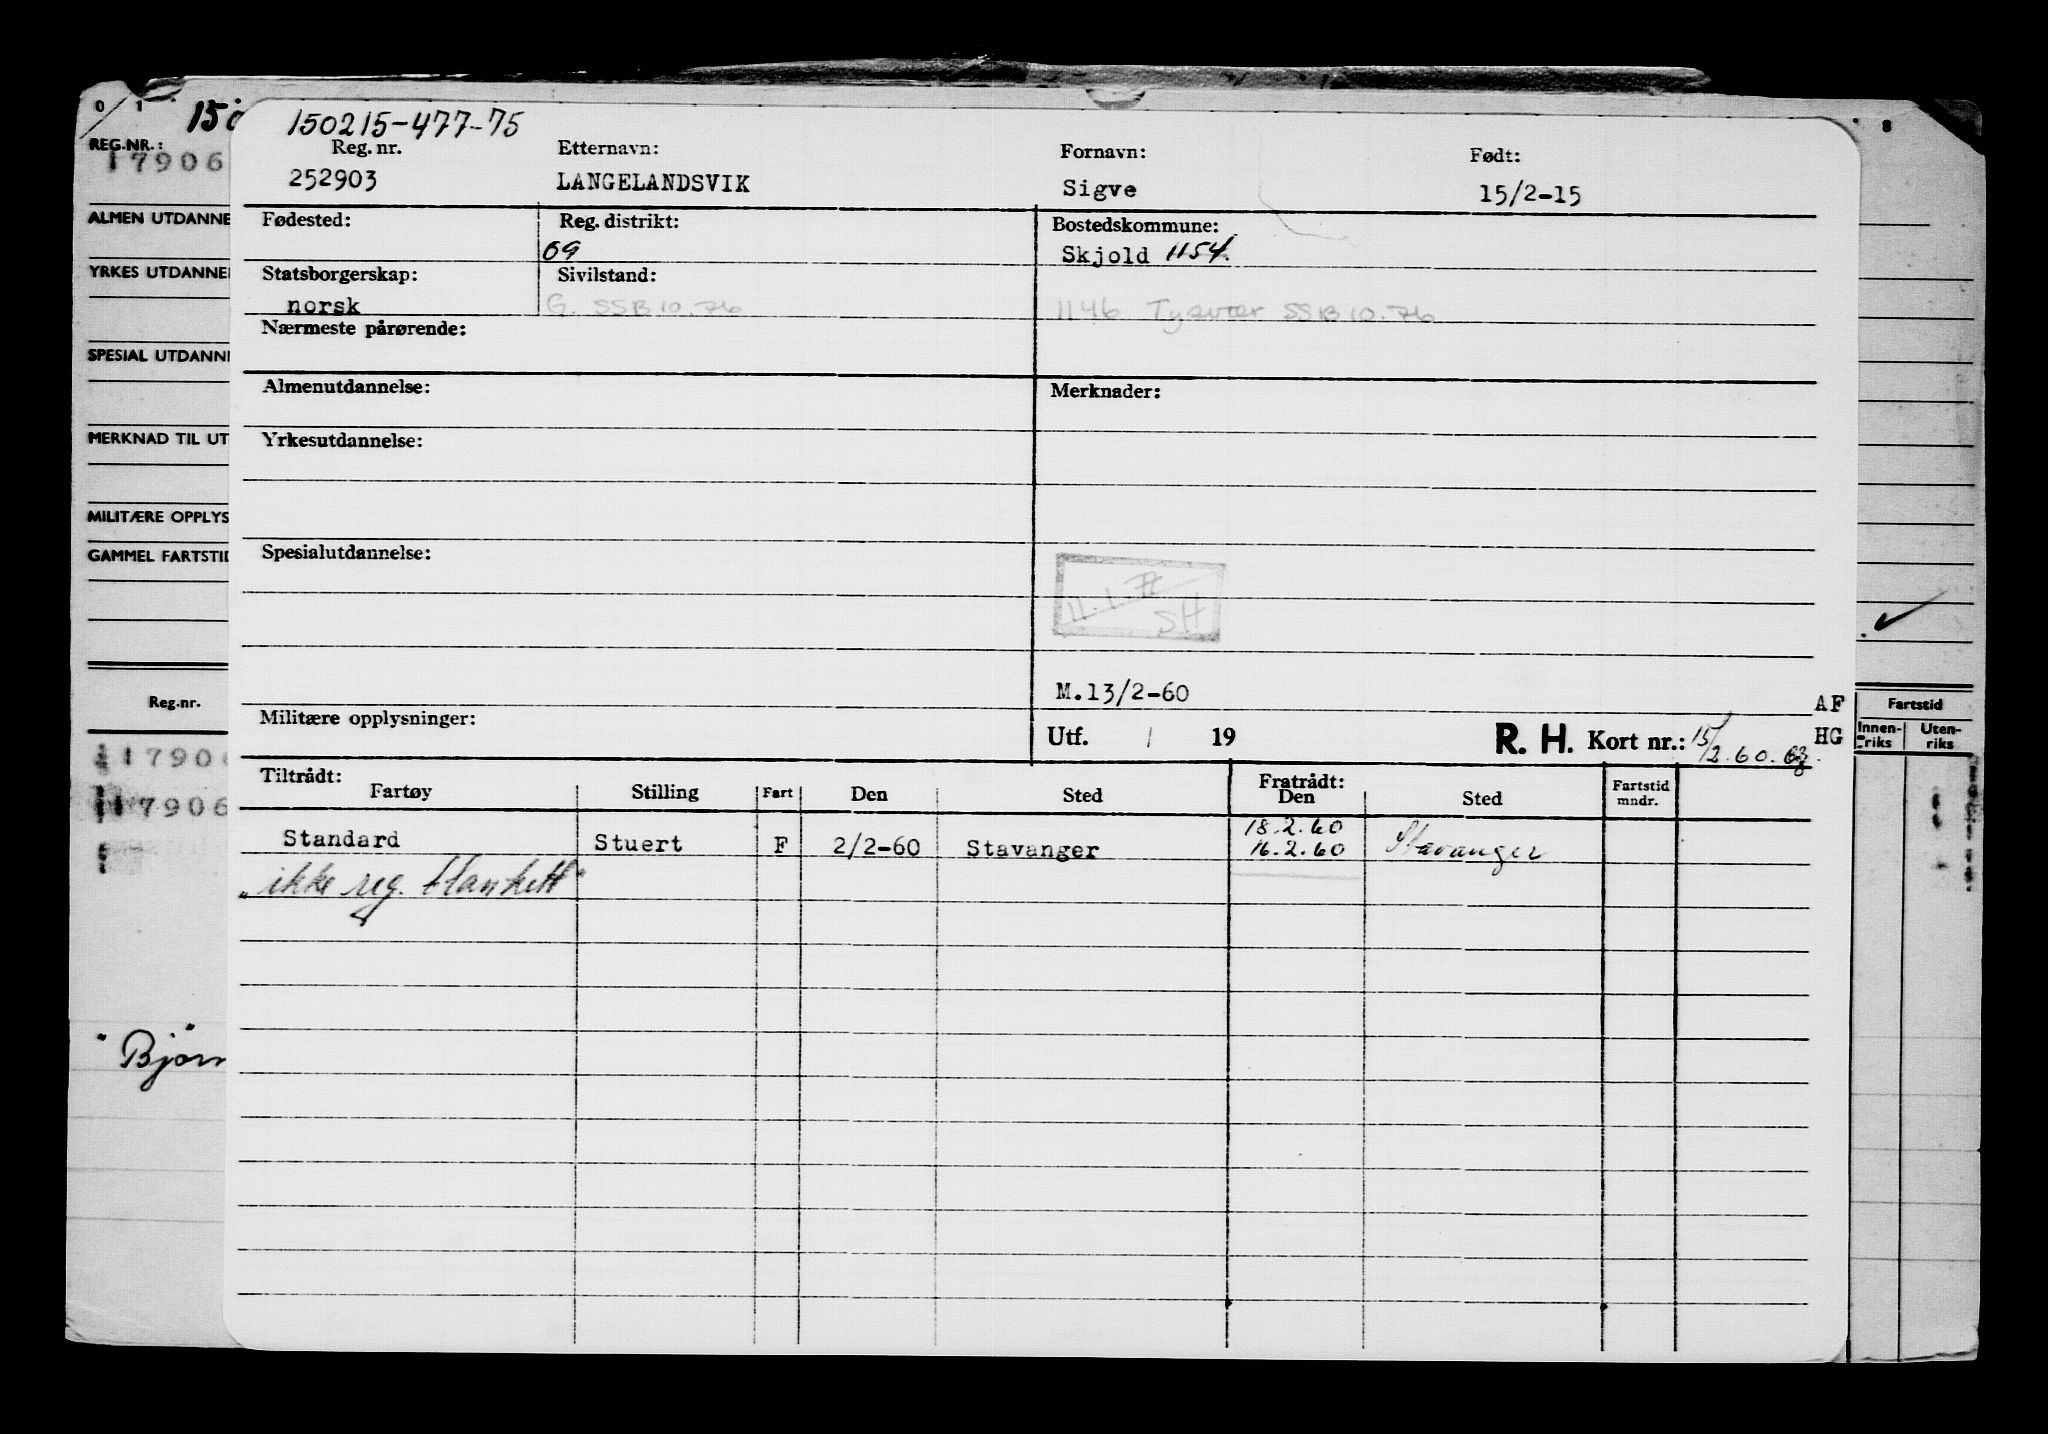 0 1 15
8
REG.NR.:
17906
ALMEN UTDANNE
YRKES UTDANNE
SPESIAL UTDANN
MERKNAD TIL UT
MILITÆRE OPPLYS
GAMMEL FARTSTID
Reg.nr.
17906
17906
"Bjørn
Fartstid
Innenriks Utenriks
150215-477-75
Reg. nr. Etternavn: Fornavn: Født:
252903 LANGELANDSVIK Sigve 15/2-15
Fødested: Reg. distrikt: Bostedskommune:
09 Skjold 1154.
Statsborgerskap: Sivilstand:
norsk G. SSB 10.76 1146 Tysvær SSB 10.76
Nærmeste pårørende:
Almenutdannelse: Merknader:
Yrkesutdannelse:
Spesialutdannelse:
11.1.77
SH
M.13/2-60
AF
Militære opplysninger: Utf. / 19 R. H. Kort nr.: 15/2.60. HG
Tiltrådt: Fratrådt:
Fartøy Stilling Fart Den Sted Den Sted Fartstid mndr.
18.2.60
Standard Stuert F 2/2-60 Stavanger 16.2.60 Stavanger
"ikke reg. blankett"